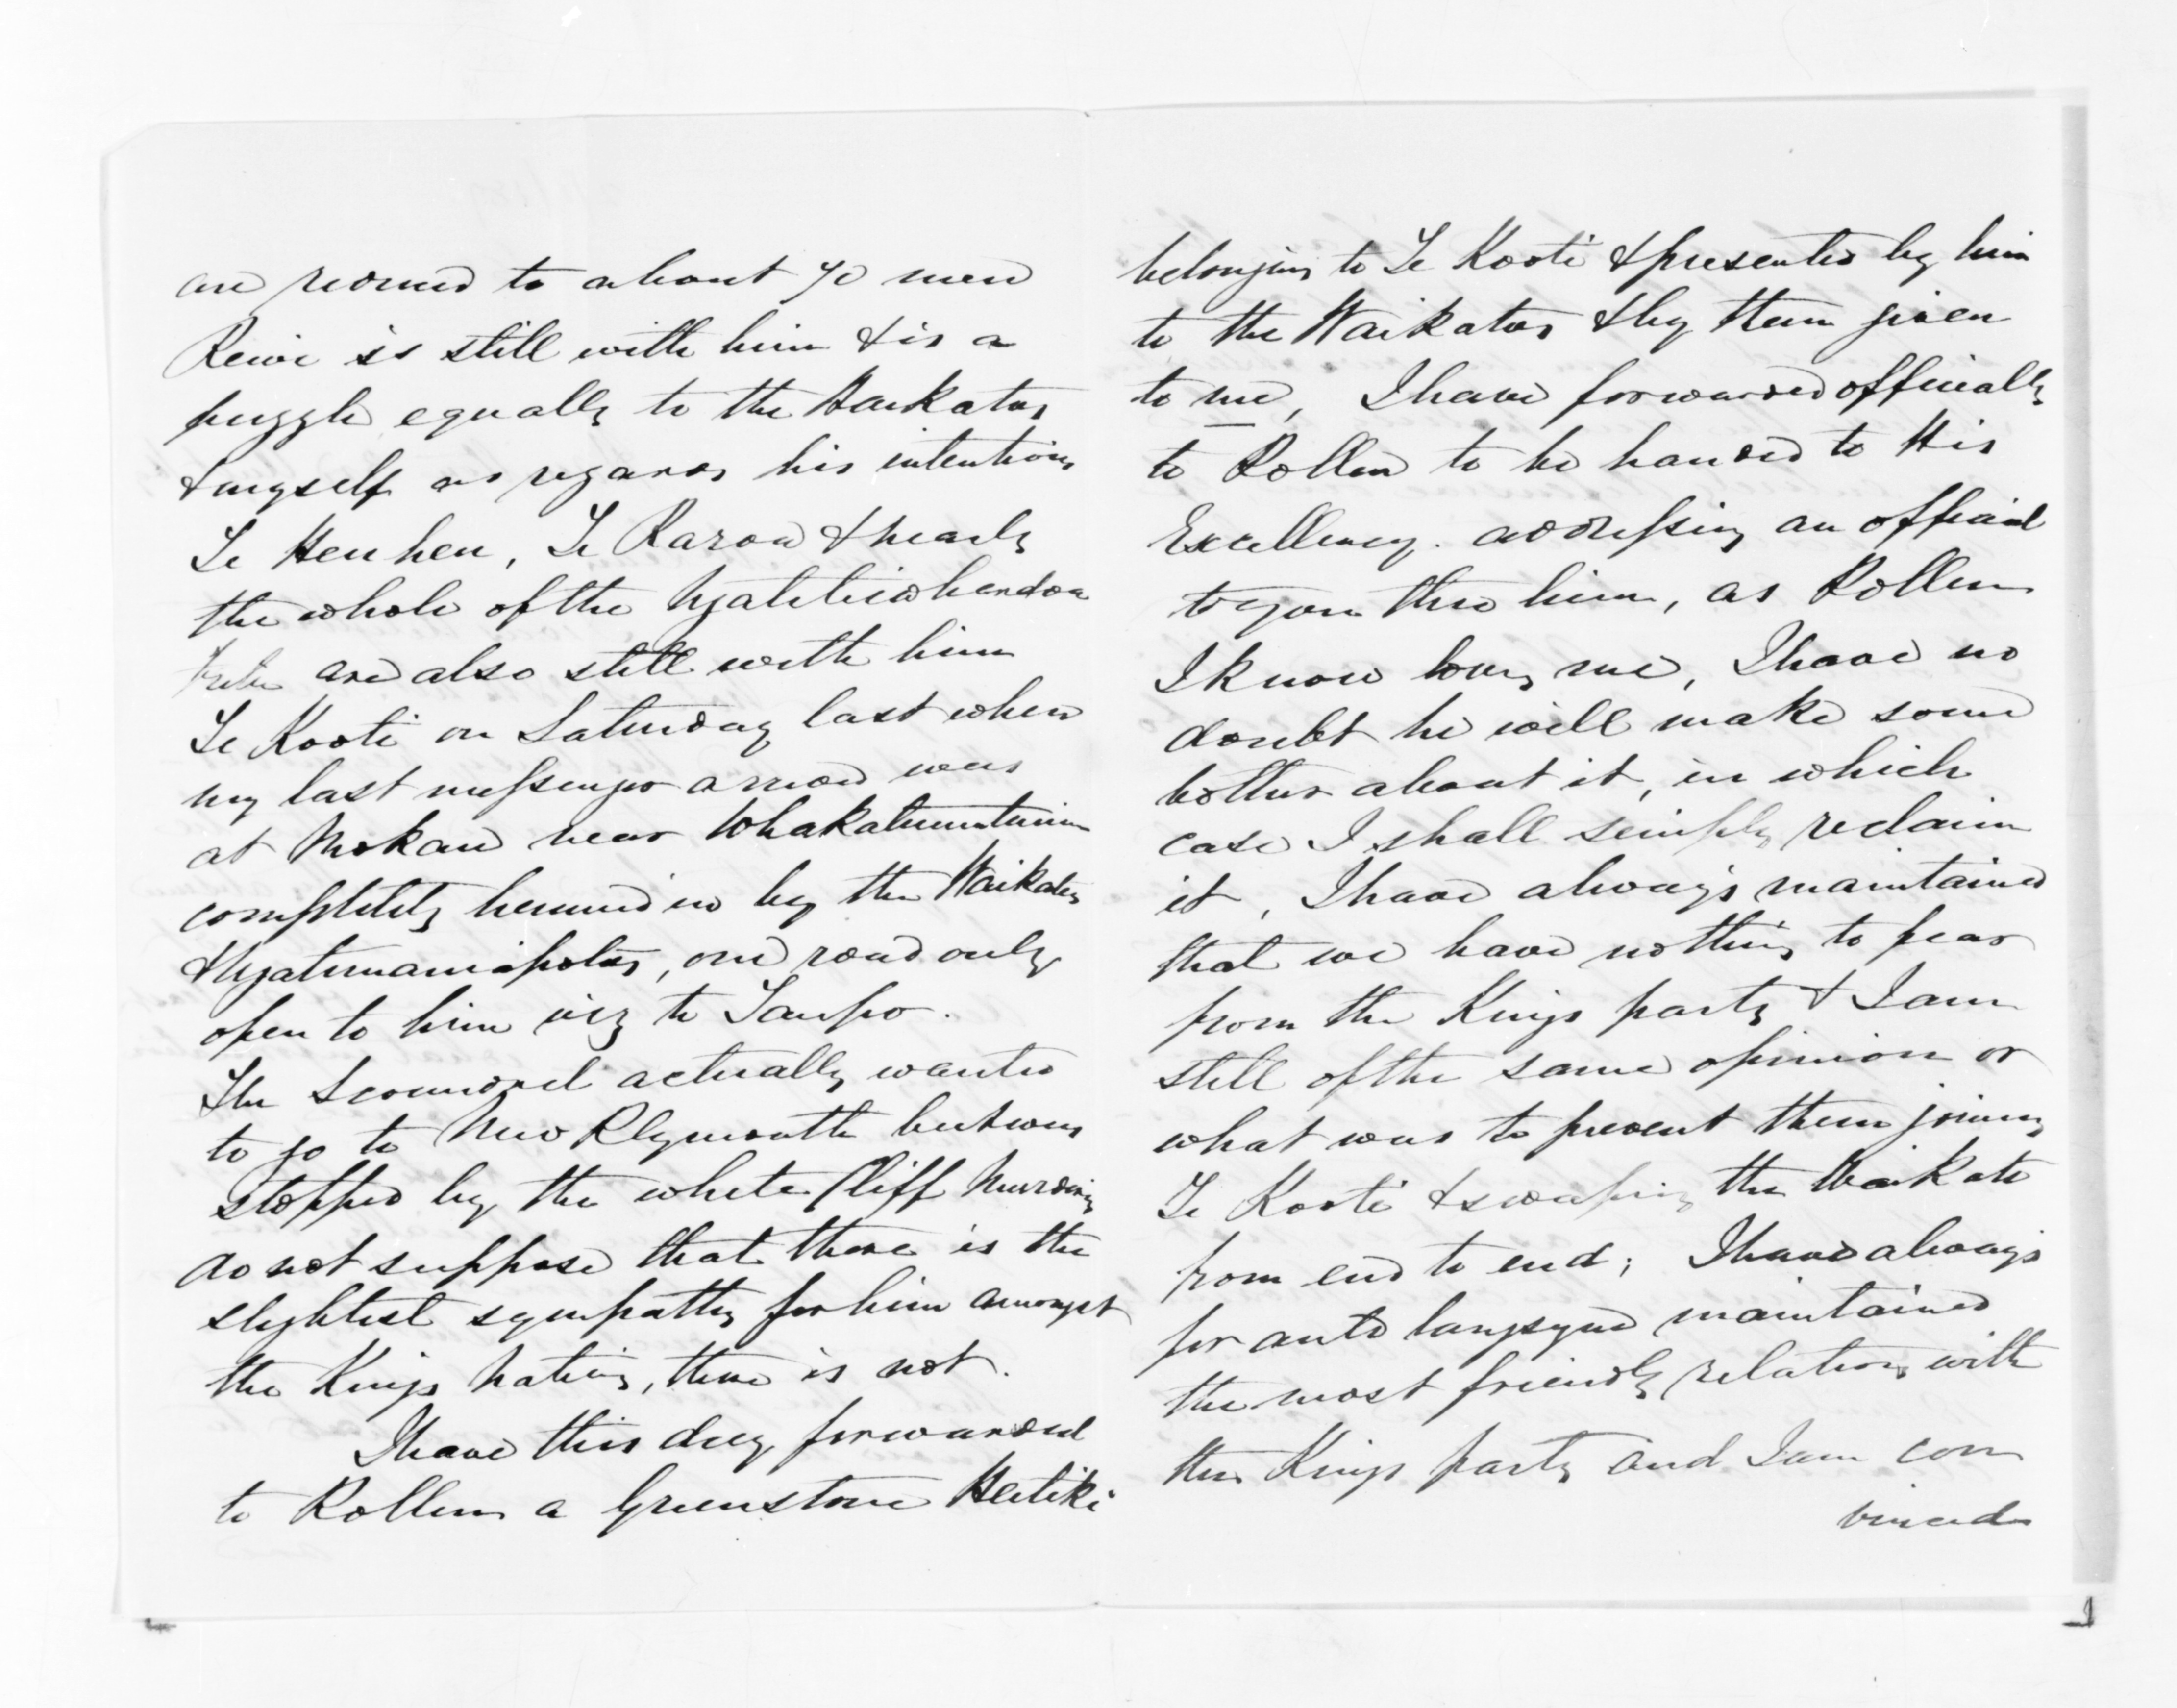 are reduced to about 70 men
Rewi is still with him & is a
puzzle equally to the Waikatos
& myself as regards his intentions
Te Heu heu, Te Raroa & nearly
the whole of the
tribe are also still with him
Te Kooti on Saturday last when
my last messenger arrived was
at Mokau near
completely hemmed in by the Waikatos
& Ngatimaniapotos, one road only
open to him viz to Taupo.
The Scoundrel actually wanted
to go to New Plymouth but was
stopped by the white Cliff Murders
do not suppose that there is the
slightest sympathy for him amongst
the Kings natives, there is not.
I have this day forwarded
to Pollen a Greenstone Heitiki
belonging to Te Kooti & presented by him
to the Waikatos & by them given
to me, I have forwarded officially
to Pollen to be handed to His
Excellency. addressing an official
to you thro him, as Pollen
I know loves me, I have no
doubt he will make some
bother about it, in which
case I shall simply reclaim
it, I have always maintained
that we have nothing to fear
from the Kings party & I am
still of the same opinion or
what was to prevent them joining
Te Kooti & sweeping the Waikato
from end to end; I have always
for auld langsyne maintained
the most friendly relations with
the Kings party and I am con
vinced